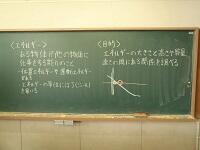 〈エネルギー〉
ある物体が他の物体に
仕事をする能力のこと
・位置エネルギーを運動エネルギー
・エネルギーの単位にはJ(ジュール)
を用いる
〈目的〉
エネルギーの大きさと高さや質量
速さの間にある関係を調べる